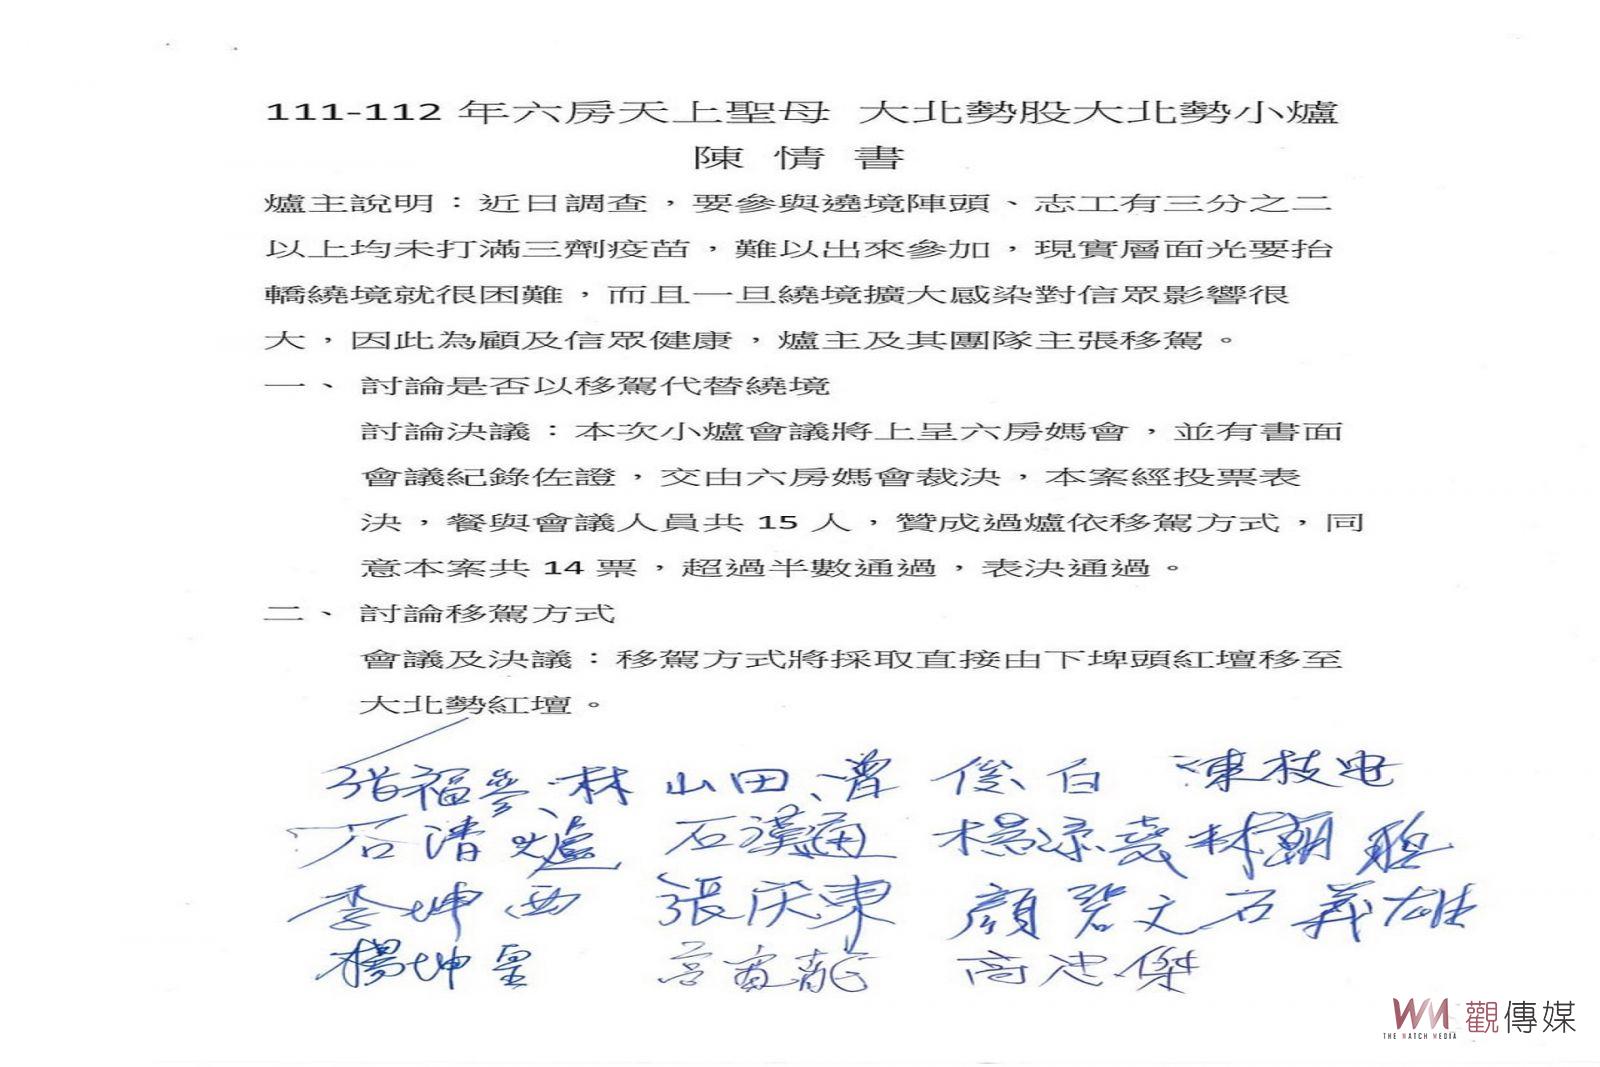 111-112 年六房天上聖母 大北勢股大北勢小爐
陳 情 書
爐主說明：近日調查，要參與遶境陣頭、志工有三分之二
以上均未打滿三劑疫苗，難以出來參加，現實層面光要抬
轎繞境就很困難，而且一旦繞境擴大感染對信眾影響很
大，因此為顧及信眾健康，爐主及其團隊主張移駕。
一、 討論是否以移駕代替繞境
討論決議：本次小爐會議將上呈六房媽會，並有書面
會議紀錄佐證，交由六房媽會裁決，本案經投票表
決，餐與會議人員共 15 人，贊成過爐依移駕方式，同
意本案共 14 票，超過半數通過，表決通過。
二、 討論移駕方式
會議及決議：移駕方式將採取直接由下埤頭紅壇移至
大北勢紅壇。
張福參、林山田、曾俊白 陳枝
石清爐 石漢通 林朝聰
李坤西 張庆東 顏碧文 石義雄
楊坤皇 高忠傑
WM 觀傳媒
THE WATCH MEDIA